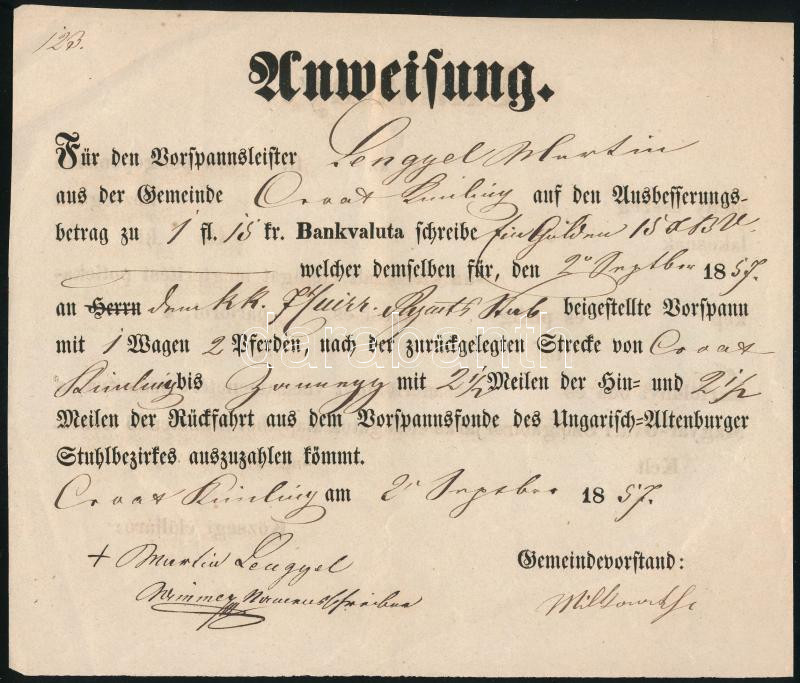 123.
Anweisung.
Für den Vorspannsleister Lengyel Martin
aus der Gemeinde Croat Kimling auf den Ausbesserungs-
betrag zu 1 fl. 15 kr. Bankvaluta schreibe Ein Gulden 15 x BV.
welcher demselben für, den 2. Septber 1857.
an Herrn dem kk. Stab beigestellte Vorspann
mit 1 Wagen 2 Pferden, nach der zurückgelegten Strecke von Croat
Kimling bis Zanegg mit 2 1/2 Meilen der Hin- und 2 1/2
Meilen der Rückfahrt aus dem Vorspannsfonde des Ungarisch-Altenburger
Stuhlbezirkes auszuzahlen kömmt.
Croat Kimling am 2. Septber 1857.
+ Martin Lengyel
Gemeindevorstand:
Wimmer Namensschreiber
darabanth